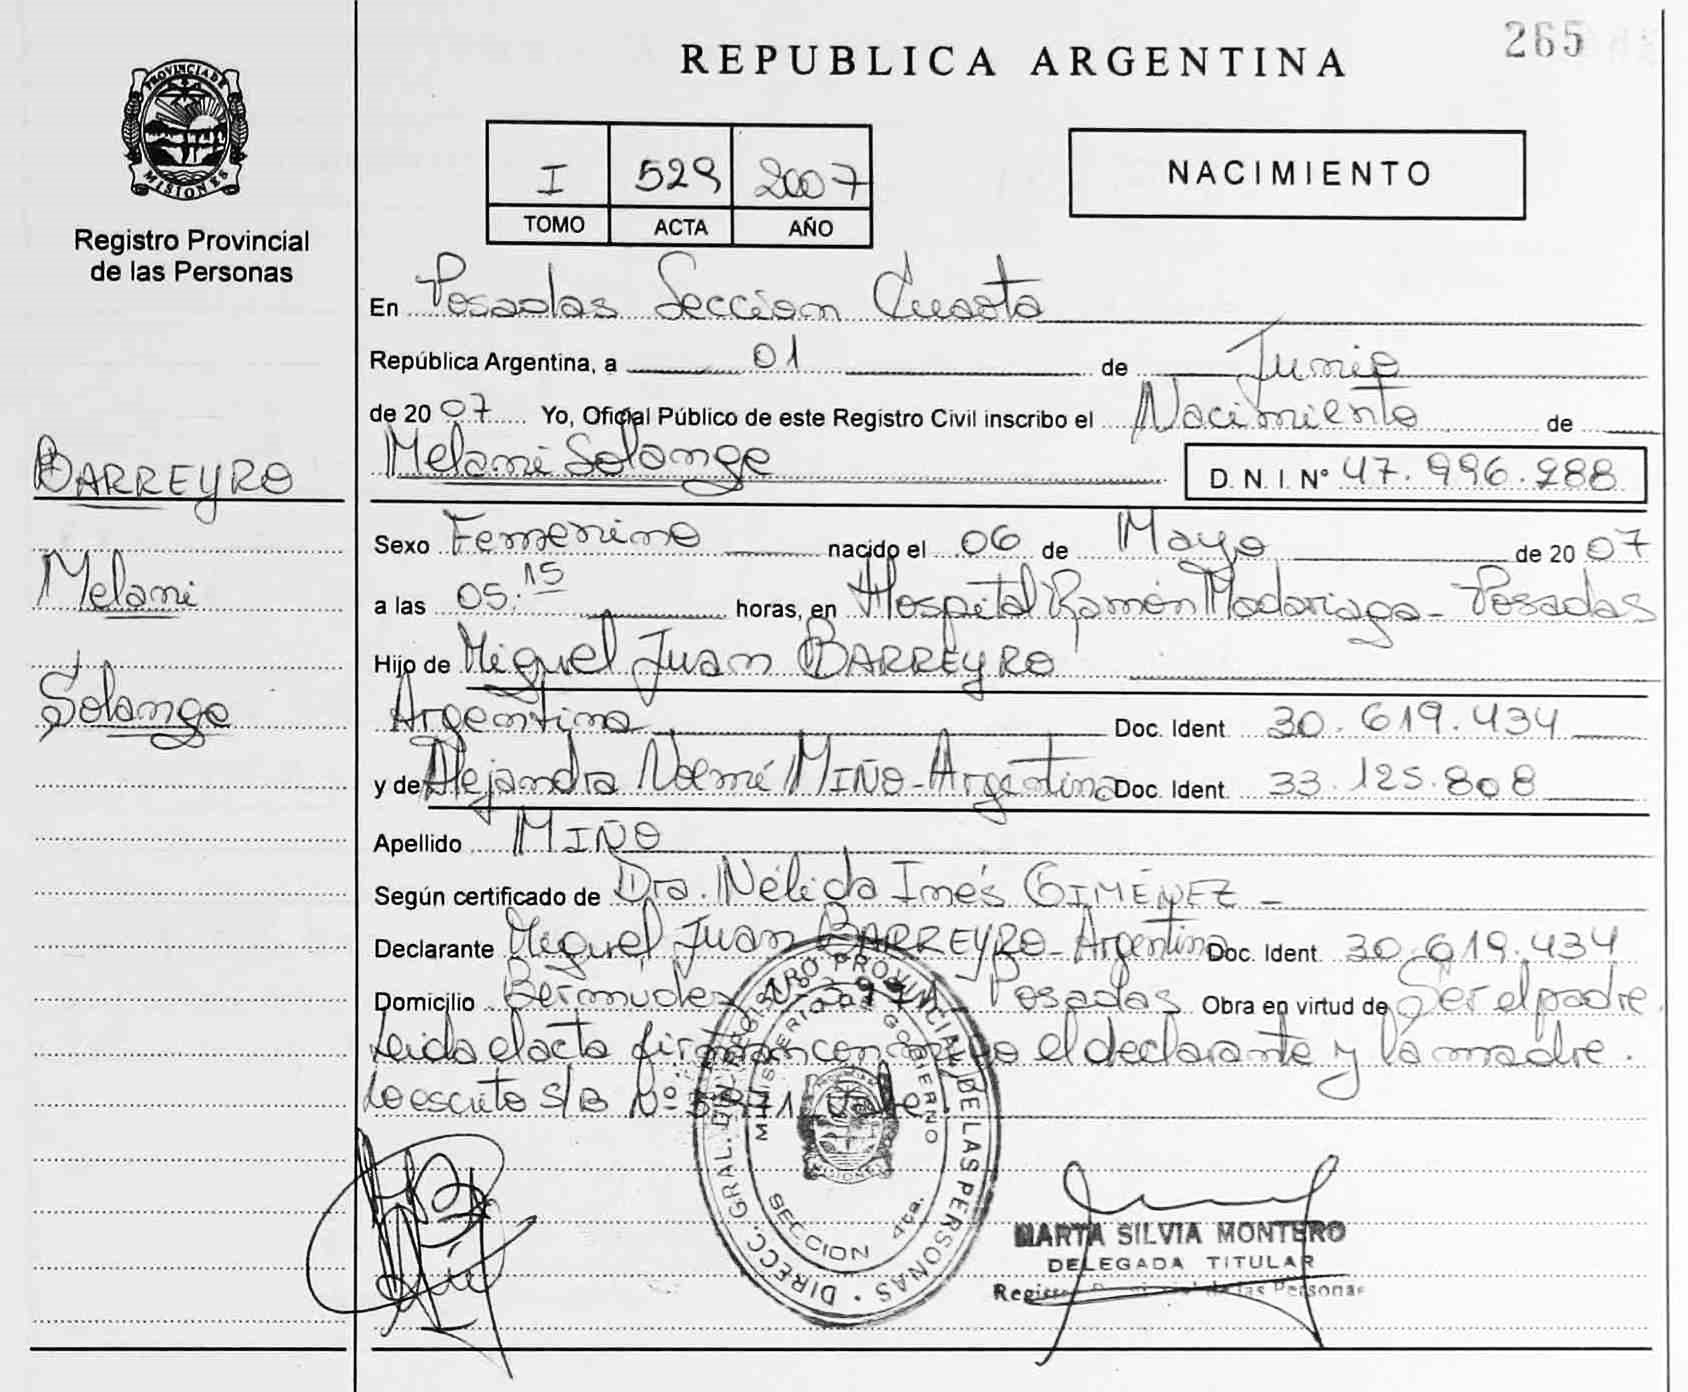 265
REPUBLICA ARGENTINA
PROVINCIA DE MISIONES
Registro Provincial
de las Personas
I 529 2007
TOMO ACTA AÑO
NACIMIENTO
En Posadas Sección Cuarta
República Argentina, a 01 de Junio
de 2007 Yo, Oficial Público de este Registro Civil inscribo el Nacimiento de
Melani Solange
D. N. I. Nº 47.996.288
BARREYRO
Melani
Solange
Sexo Femenino nacido el 06 de Mayo de 2007
a las 05:15 horas, en Hospital Ramón Madariaga - Posadas
Hijo de Miguel Juan BARREYRO
Argentina Doc. Ident. 30.619.434
y de Alejandra Noemí MIÑO - Argentina Doc. Ident. 33.125.808
Apellido MIÑO
Según certificado de Dra. Nélida Inés GIMÉNEZ -
Declarante Miguel Juan BARREYRO - Argentina Doc. Ident. 30.619.434
Domicilio Bermudez Posadas Obra en virtud de Ser el padre.
Leida el acta firman conmigo el declarante y la madre.
Lo escrito S/B Nº Vale.
DIRECC. GRAL. DEL REGISTRO PROVINCIAL DE LAS PERSONAS
MINISTERIO DE GOBIERNO
MISIONES
SECCION 4ta.
MARTA SILVIA MONTERO
DELEGADA TITULAR
Registro Provincial de las Personas